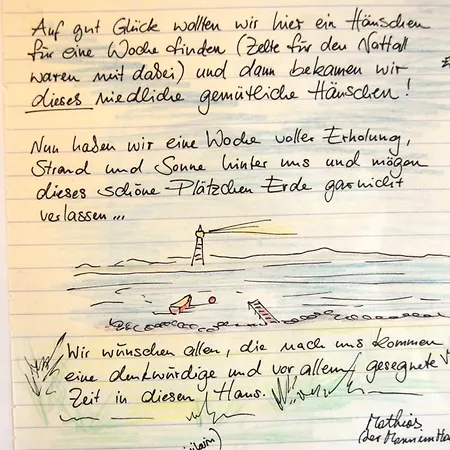 Auf gut Glück wollten wir hier ein Häuschen
für eine Woche finden (Zelte für den Notfall
waren mit dabei) und dann bekamen wir
dieses niedliche gemütliche Häuschen!
Nun haben wir eine Woche voller Erholung,
Strand und Sonne hinter uns und mögen
dieses schöne Plätzchen Erde garnicht
verlassen...
Wir wünschen allen, die nach uns kommen
eine denkwürdige und vor allem gesegnete
Zeit in diesem Haus.
Mathias
(der Mann im